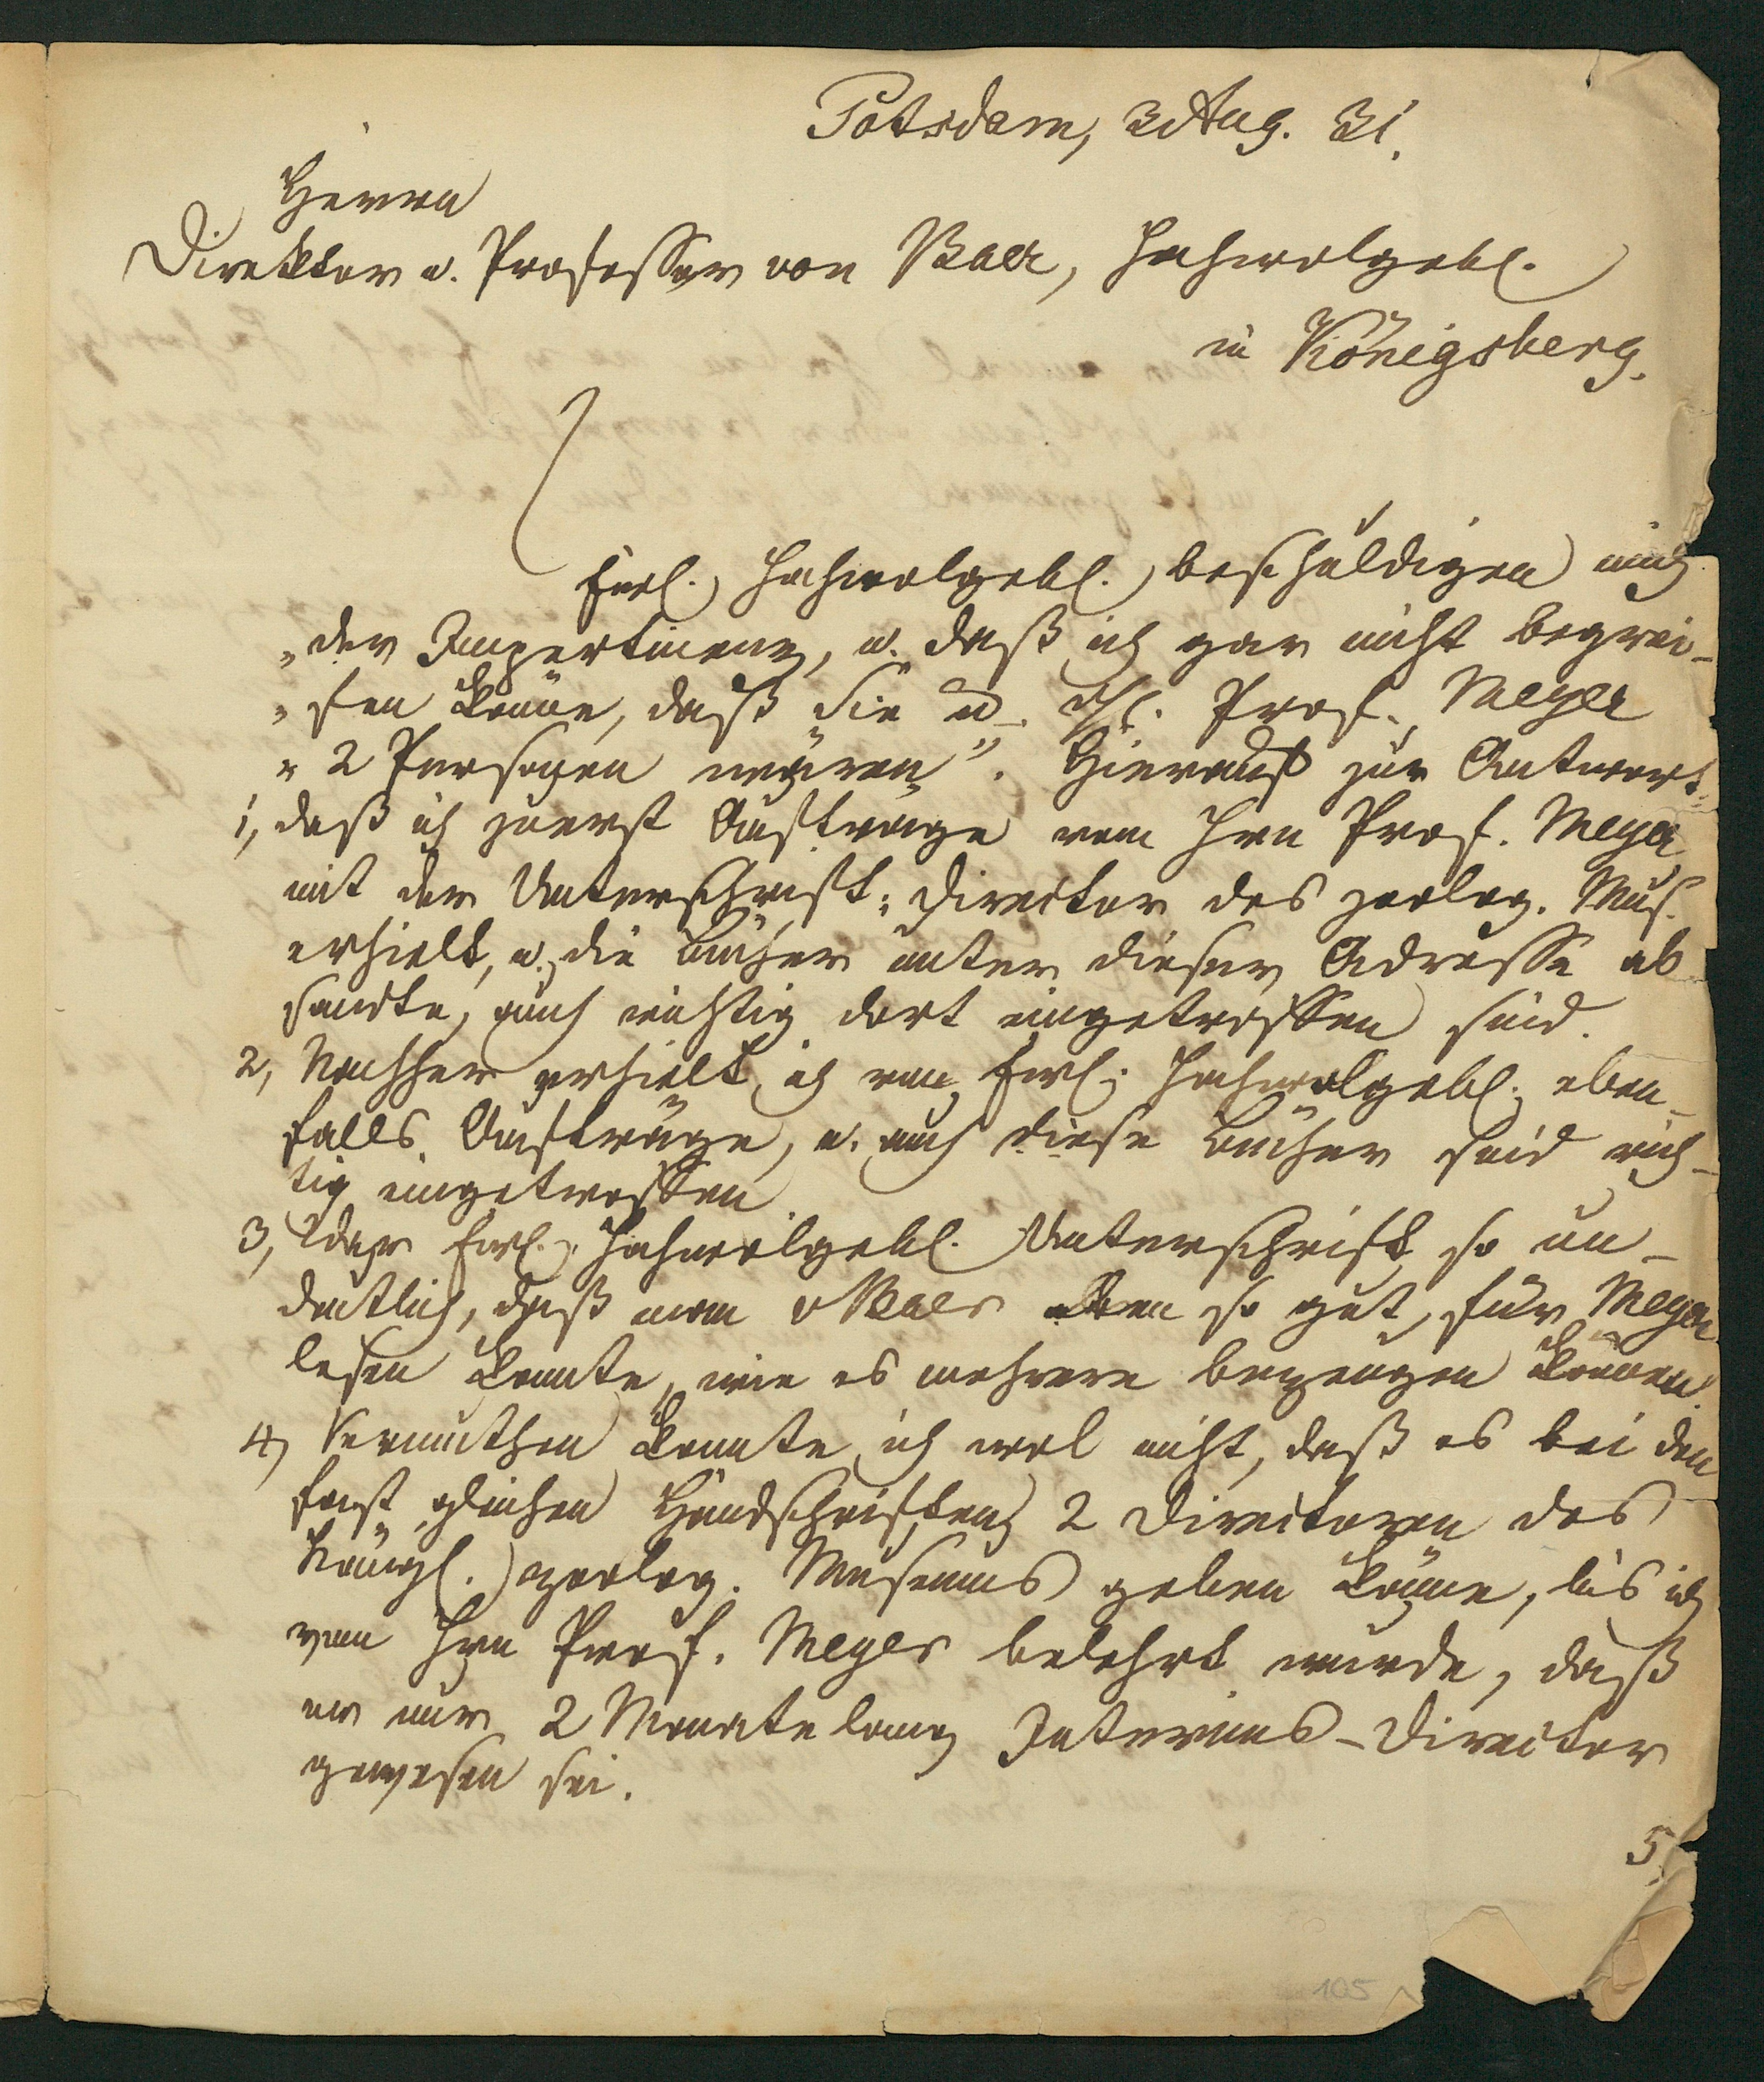 Potsdam, 3 Aug. 31.
Herrn
Direktor u. Professor von Baer, Hochwolgebl.
in Königsberg.
Ewl. Hochwolgebl. beschuldigen mich
„der Impertinenz, u. daß ich gar nicht begrei-
„fen könne, daß Sie u. Hr. Prof. Meyer
„2 Personen wären“. Hierauf zur Antwort:
1, daß ich zuerst Aufträge vom Hrn Prof. Meyer
mit der Unterschrift: Director des zoolog. Mus.
erhielt, u. die Bücher unter dieser Adresse ab
sandte, auch richtig dort eingetroffen sind.
2, Nachher erhielt ich von Ewl. Hochwolgebl. eben-
falls Aufträge, u. auch diese Bücher sind rich-
tig eingetroffen.
3, War Ewl. Hochwolgebl. Unterschrift so un-
deutlich, daß man v Baer eben so gut für Meyer
lesen konnte, wie es mehrere bezeugen können.
4, Vermuthen konnte ich wol nicht, daß es bei den
fast gleichen Handschriften 2 Directoren des
Königl. zoolog. Museums geben könne, bis ich
vom Hrn Prof. Meyer belehrt wurde, daß
er nur 2 Monate lang Interims-Director
gewesen sei.
5,
105